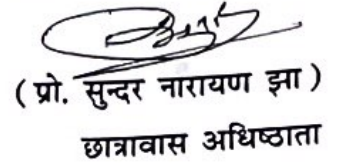 ( प्रो. सुन्दर नारायण झा )
छात्रावास अधिष्ठाता